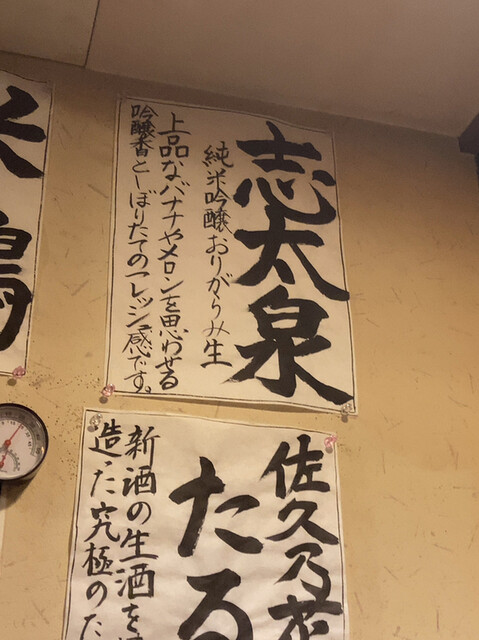 志太泉
純米吟醸おりがらみ生
上品なバナナやメロンを思わせる
吟醸香としぼりたてのフレッシュ感です。
佐久乃花
たる
新酒の生酒を
造った究極のた